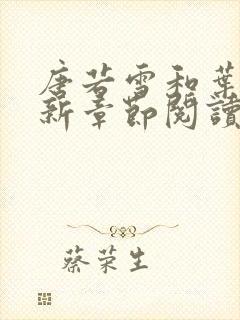 唐若雪和葉
新章節閱讀
蔡荣生